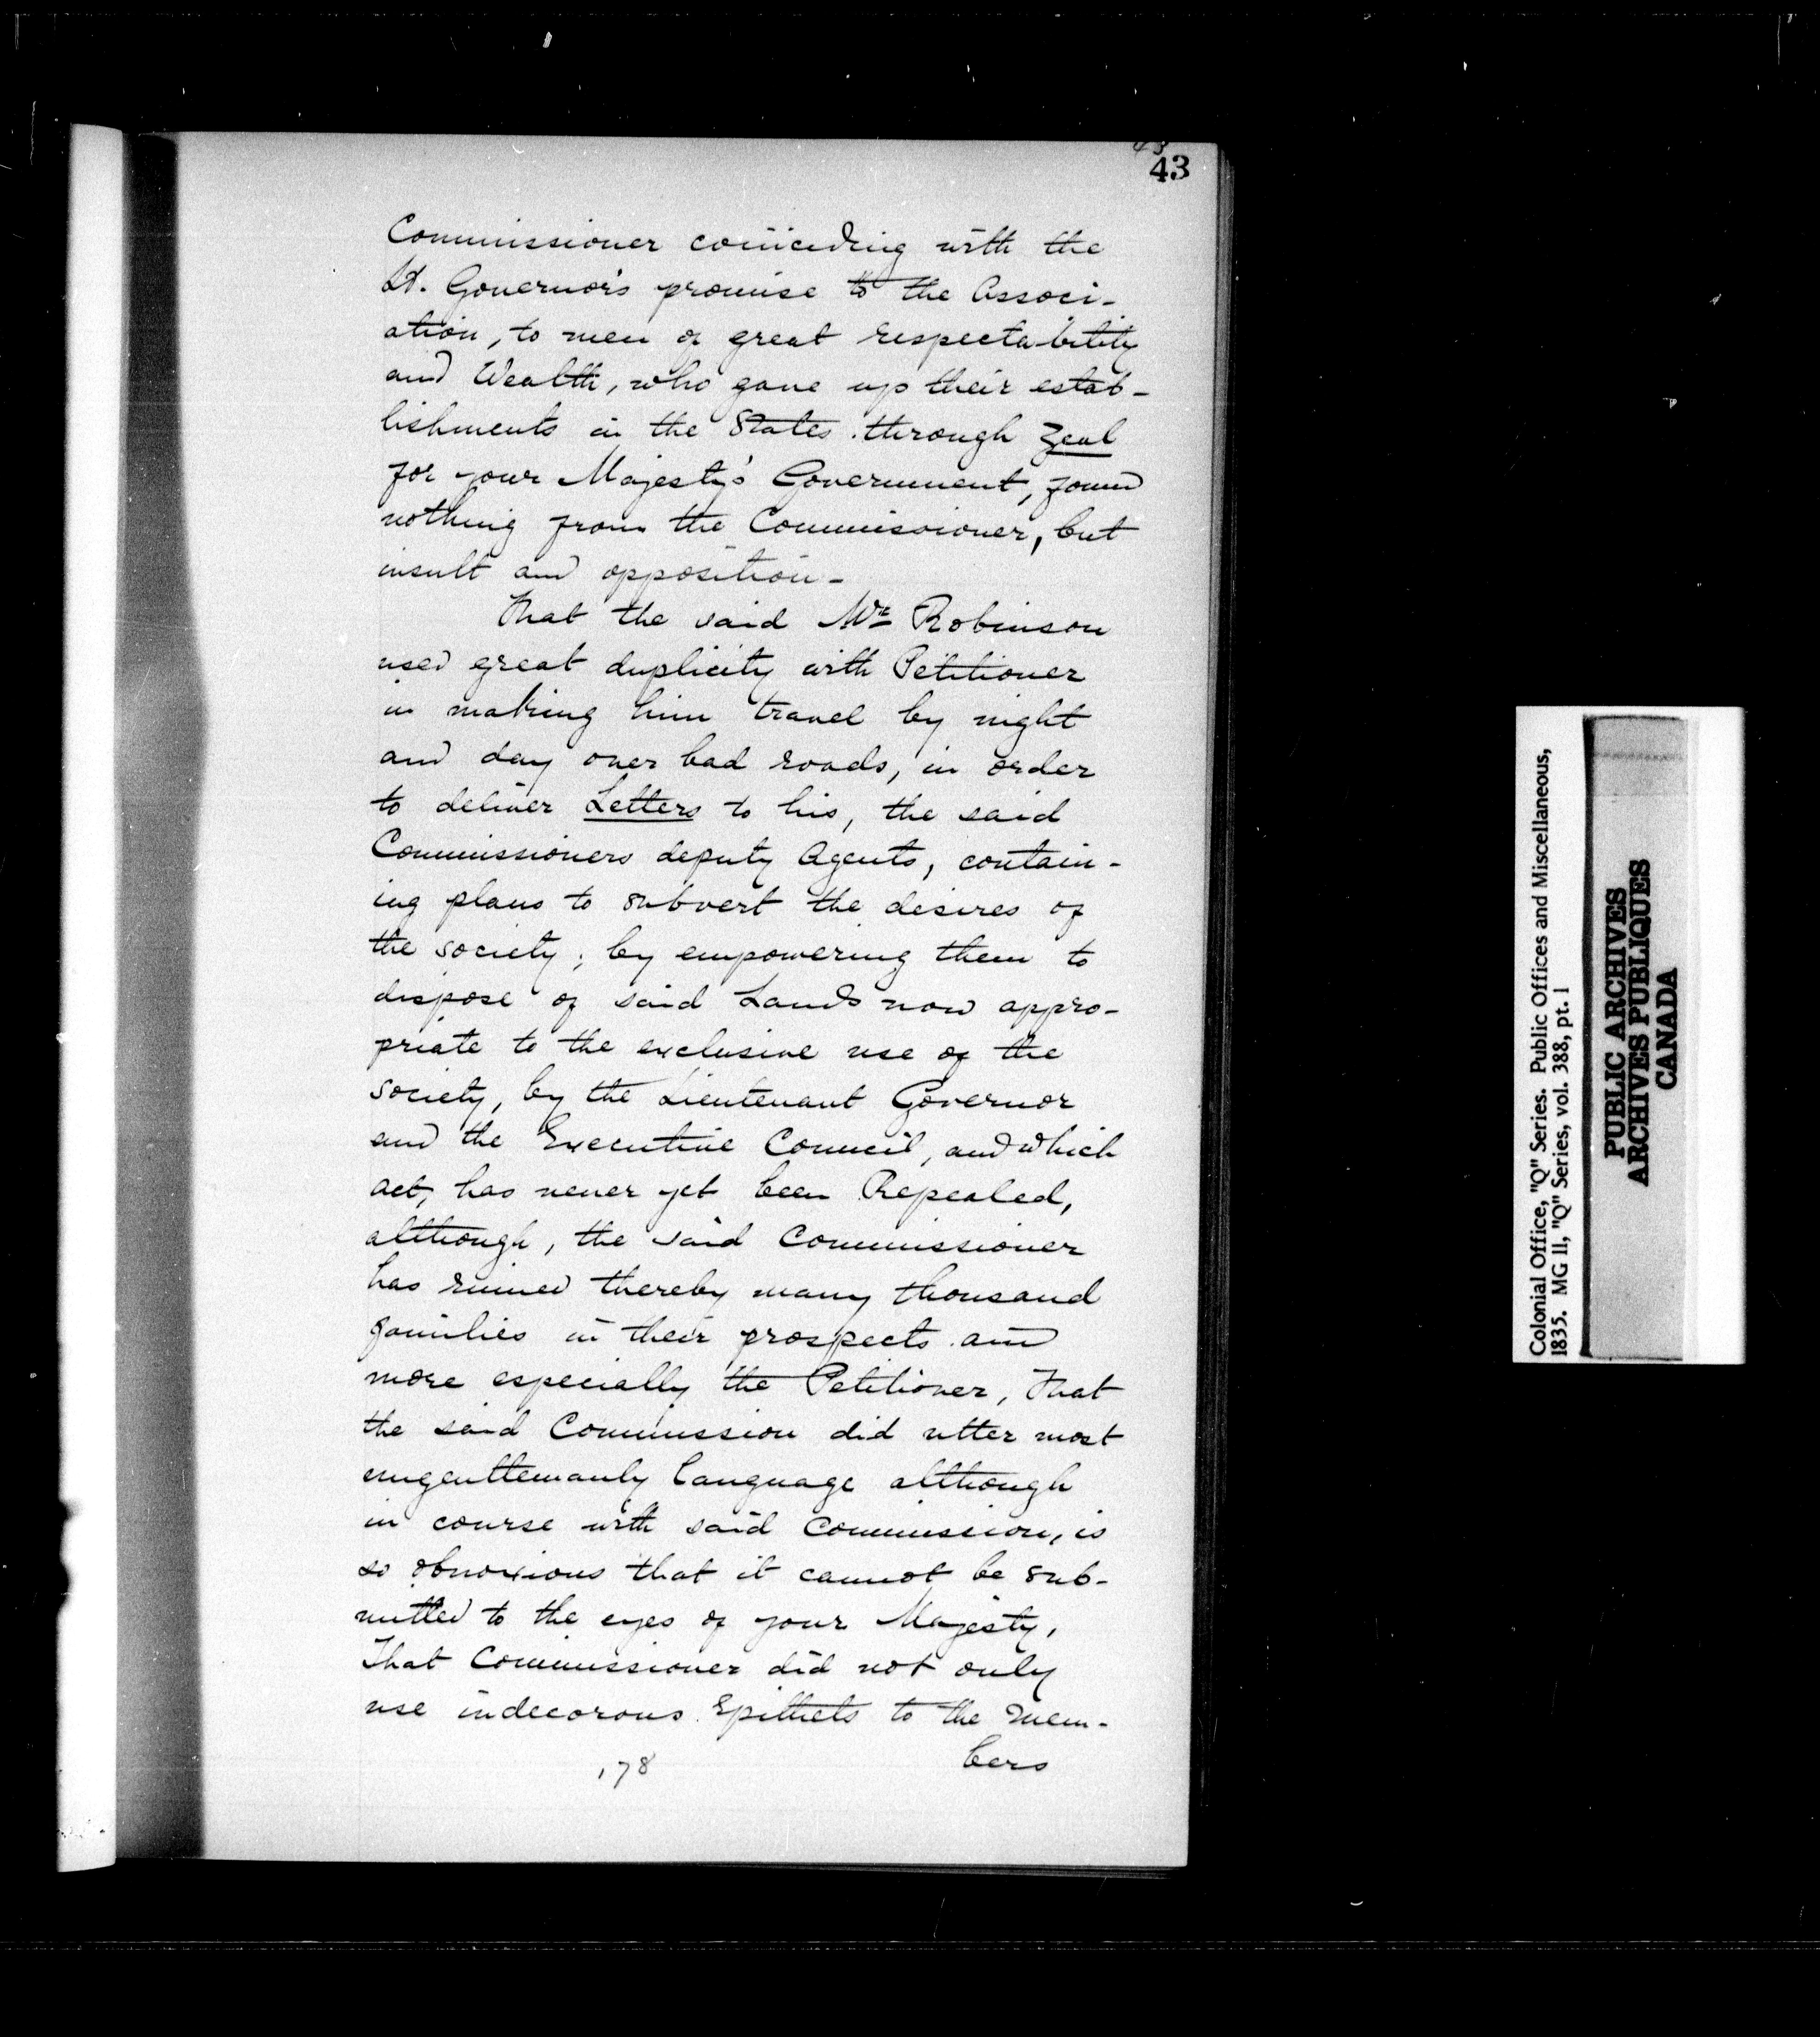 43
43
Commissioner coinciding with the
Lt. Governor's promise to the Associ-
ation, to men of great respectability
and Wealth, who gave up their estab-
lishments in the States through Zeal
for your Majesty's Government, found
nothing from the Commissioner, but
insult and opposition -
That the said Mr Robinson
used great duplicity with Petitioner
in making him travel by night
and day over bad roads, in order
to deliver Letters to his, the said
Commissioners deputy Agents, contain-
ing plans to subvert the desires of
the society; by empowering them to
dispose of said Lands now appro-
priate to the exclusive use of the
society, by the Lieutenant Governor
and the Executive Council, and which
act, has never yet been Repealed,
although, the said Commissioner
has ruined thereby many thousand
families in their prospects and
more especially the Petitioner, That
the said Commission did utter most
ungentlemanly language although
in course with said Commission, is
so obnoxious that it cannot be sub-
mitted to the eyes of your Majesty,
That Commissioner did not only
use indecorous Epithets to the mem-
bers
178
Colonial Office, "Q" Series. Public Offices and Miscellaneous,
1835. MG 11, "Q" Series, vol. 388, pt. 1
PUBLIC ARCHIVES
ARCHIVES PUBLIQUES
CANADA